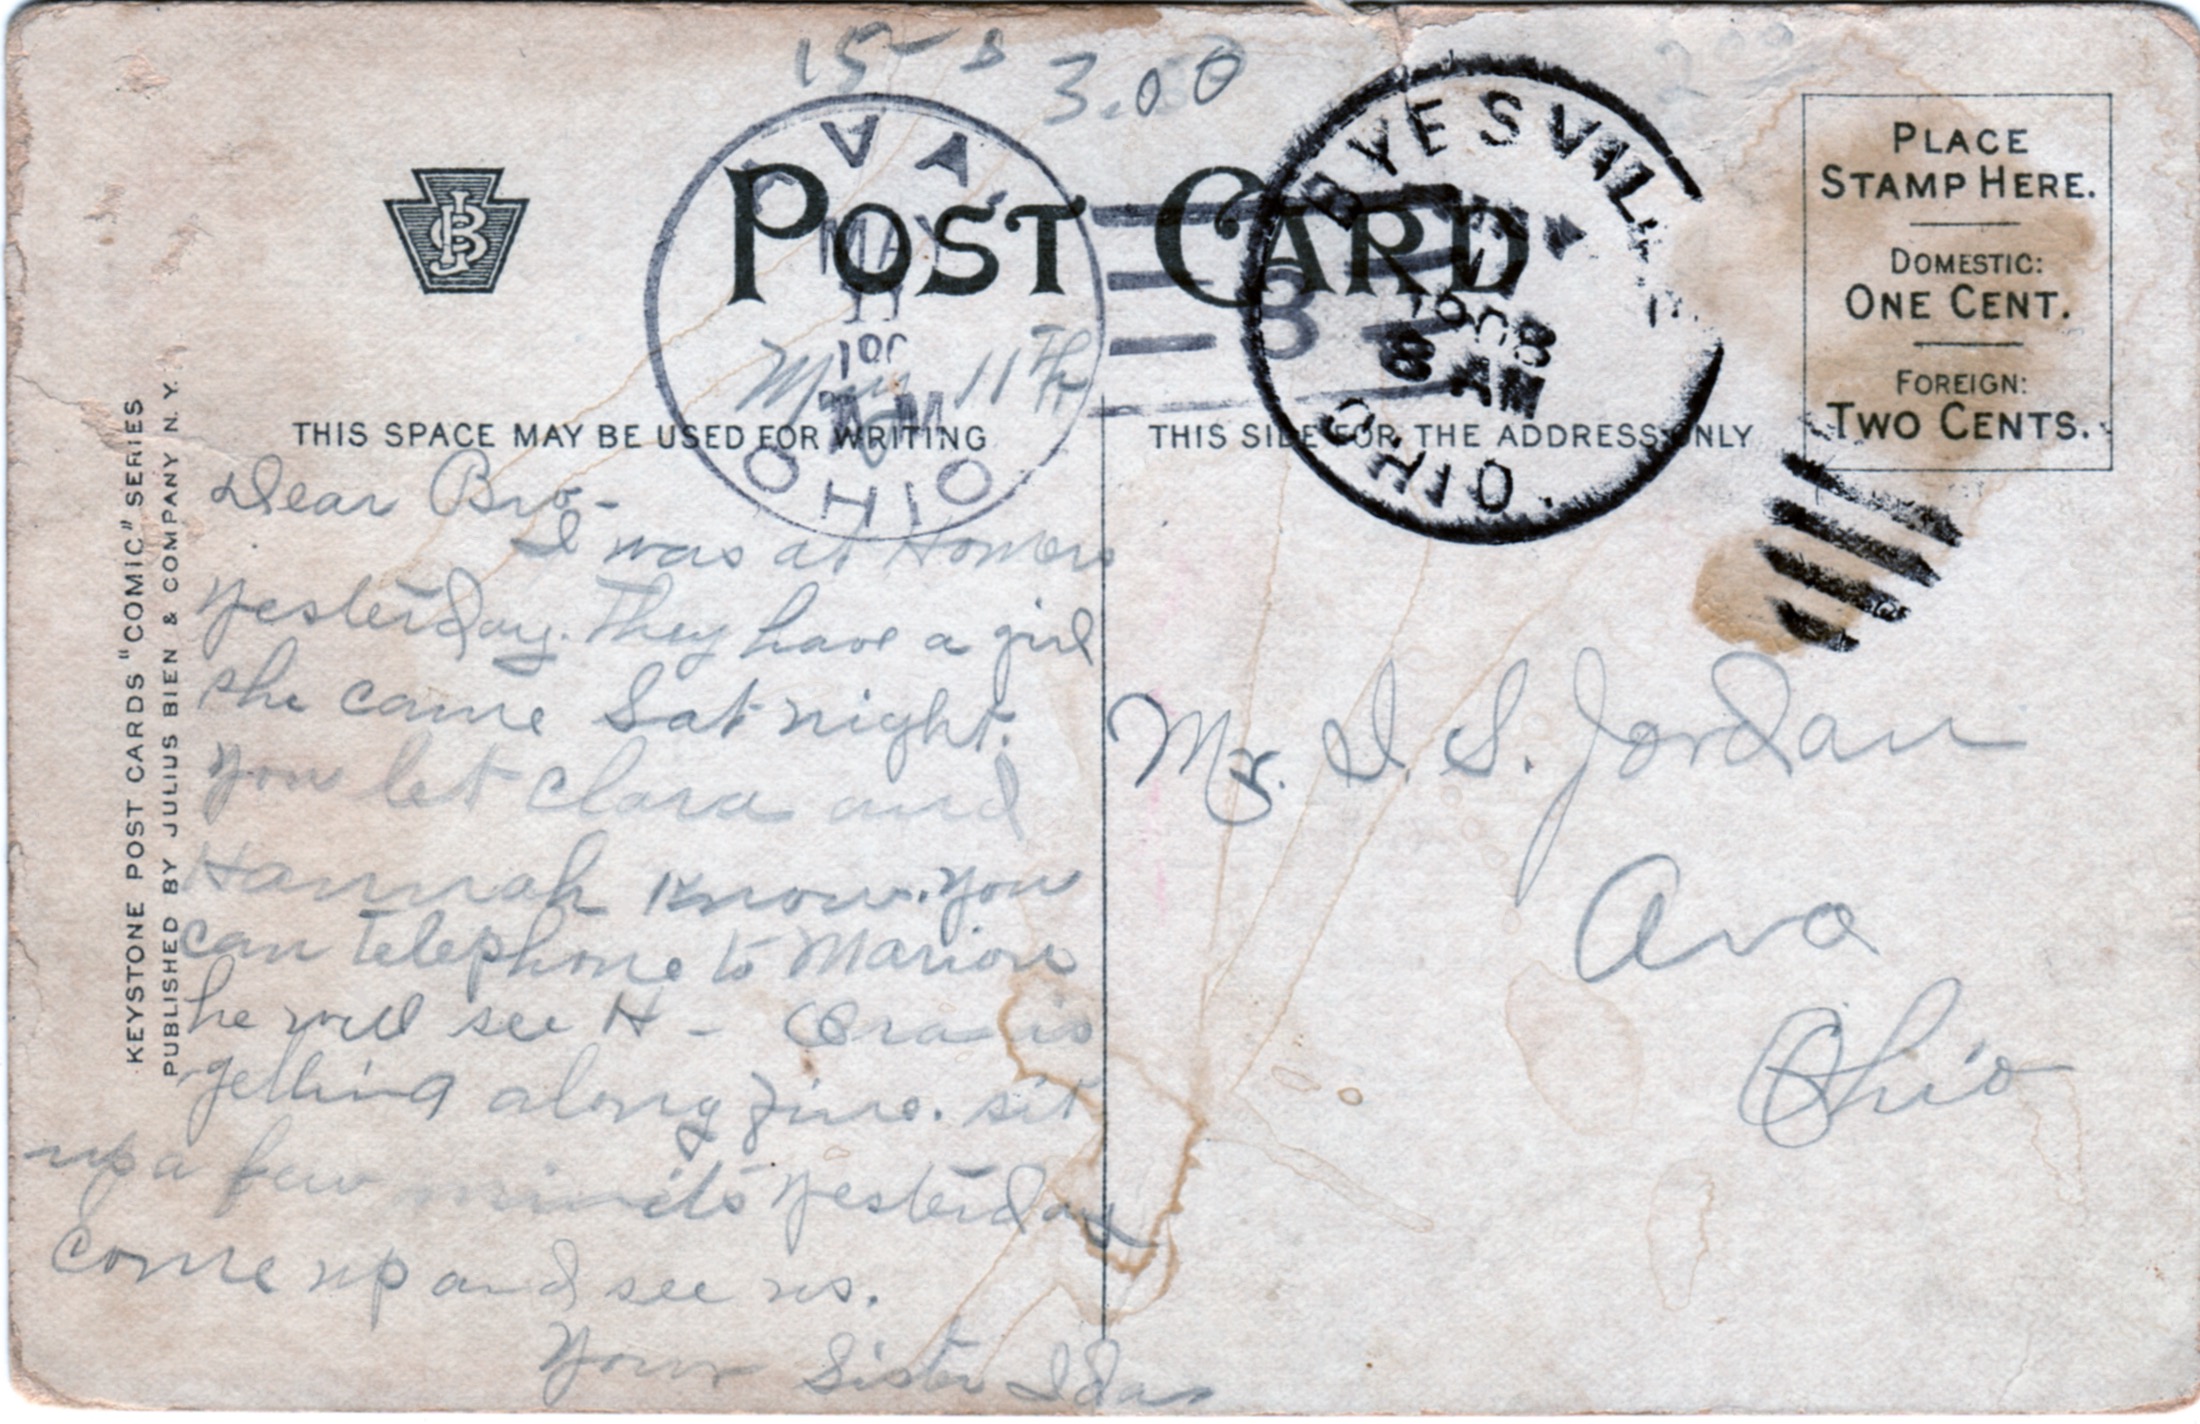 15-
3.00
2 00
POST CARD
JBC
AVA
MAY
11
190
OHIO
BYESVILL
11
1908
8 AM
OHIO
3
PLACE
STAMP HERE.
DOMESTIC:
ONE CENT.
FOREIGN:
TWO CENTS.
KEYSTONE POST CARDS "COMIC" SERIES
PUBLISHED BY JULIUS BIEN & COMPANY N. Y.
THIS SPACE MAY BE USED FOR WRITING
THIS SIDE FOR THE ADDRESS ONLY
May 11th
Dear Bro-
I was at Homers
yesterday. They have a girl
she came Sat night.
you let Clara and
Hannah know. you
can telephone to Marions
he will see H - Ora is
getting along fine. sit
up a few minits yesterday
come up and see us.
Your Sister Ida
Mr. I. S. Jordan
Ava
Ohio